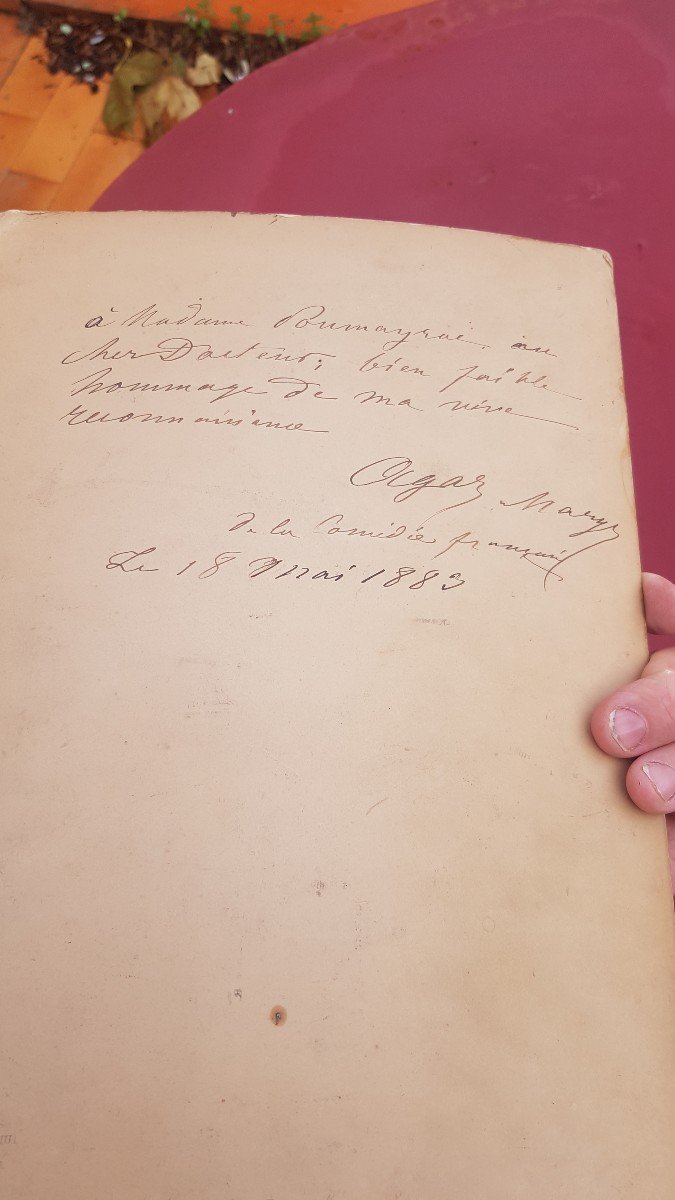 à Madame Poumayrac, au
cher Docteur, bien faible
hommage de ma vive
reconnaissance
Agar
de la Comédie française
Le 18 Mai 1883